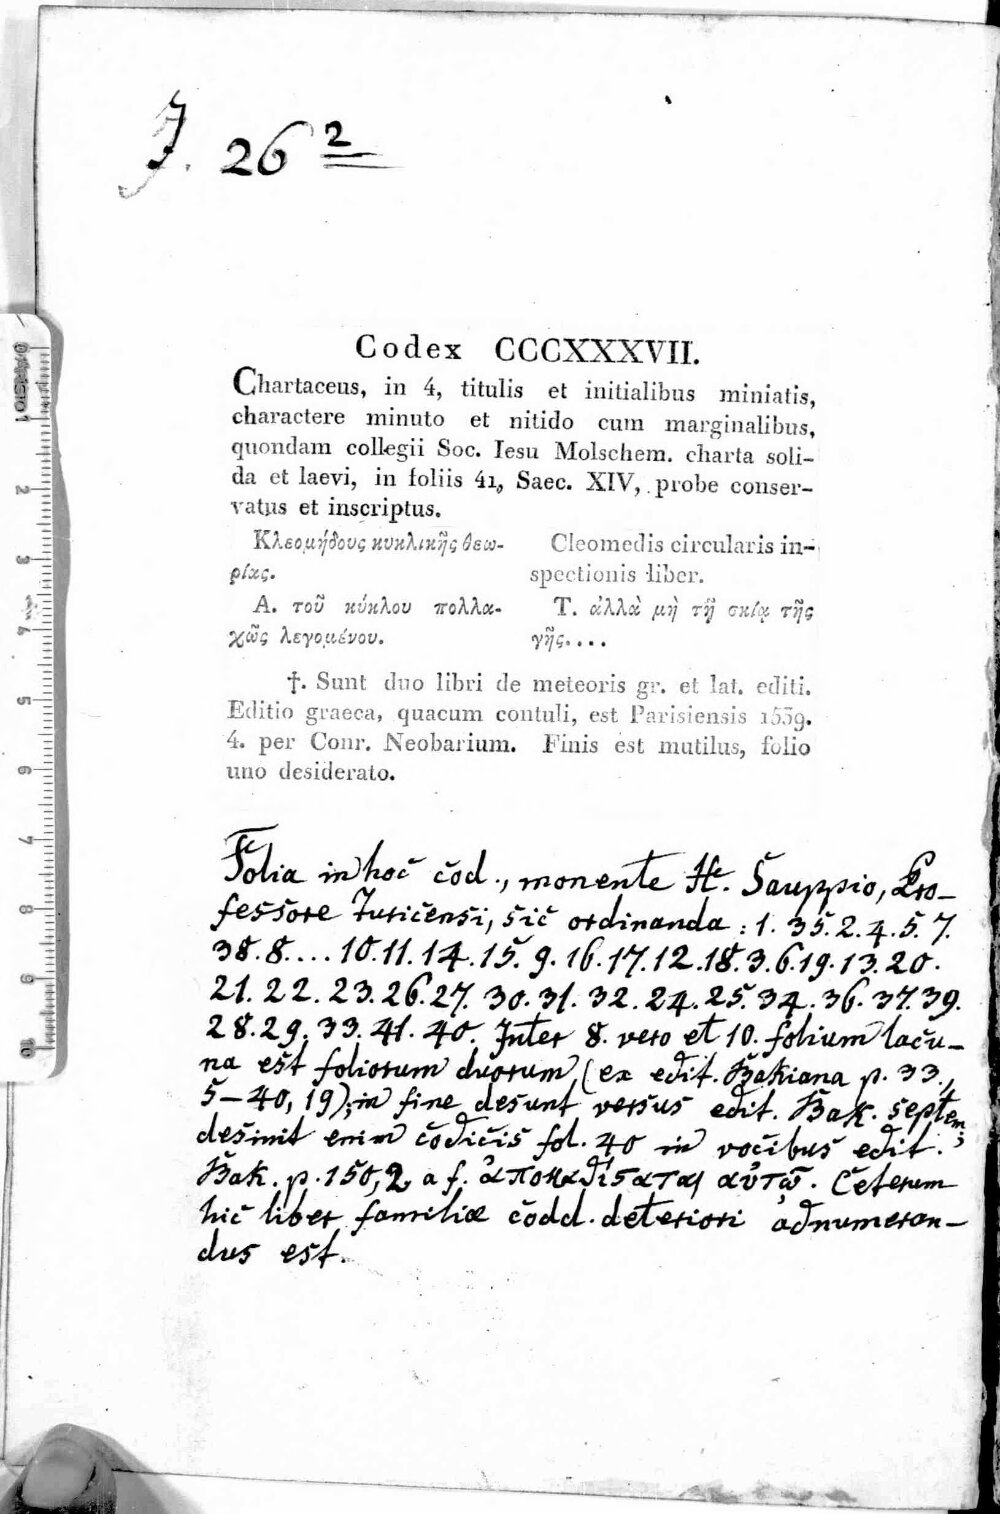 J. 26 2
Codex CCCXXXVII.
Chartaceus, in 4, titulis et initialibus miniatis,
charactere minuto et nitido cum marginalibus,
quondam collegii Soc. Iesu Molschem. charta soli-
da et laevi, in foliis 41, Saec. XIV, probe conser-
vatus et inscriptus.
Κλεομήδους κυκλικῆς θεω-
ρίας.
Cleomedis circularis in-
spectionis liber.
Α. τοῦ κύκλου πολλα-
χῶς λεγομένου.
T. ἀλλὰ μὴ τῇ σκίᾳ τῆς
γῆς....
†. Sunt duo libri de meteoris gr. et lat. editi.
Editio graeca, quacum contuli, est Parisiensis 1539.
4. per Conr. Neobarium. Finis est mutilus, folio
uno desiderato.
Folia in hoc cod., monente H. Sauppio, Pro-
fessore Turicensi, sic ordinanda: 1. 35. 2. 4. 5. 7.
38. 8.... 10. 11. 14. 15. 9. 16. 17. 12. 18. 3. 6. 19. 13. 20.
21. 22. 23. 26. 27. 30. 31. 32. 24. 25. 34. 36. 37. 39.
28. 29. 33. 41. 40. Inter 8. vero et 10. folium lacu-
na est foliorum duorum (ex edit. Bakiana p. 33,
5-40, 19); in fine desunt versus edit. Bak. septem;
desinit enim codicis fol. 40 in vocibus edit.
Bak. p. 150, 2 a f. ἀποκαθίσταται αὐτῷ. Ceterum
hic liber familiæ codd. deteriori adnumeran-
dus est.
0 ARISTO 1
2
3
4
5
6
7
8
9
10